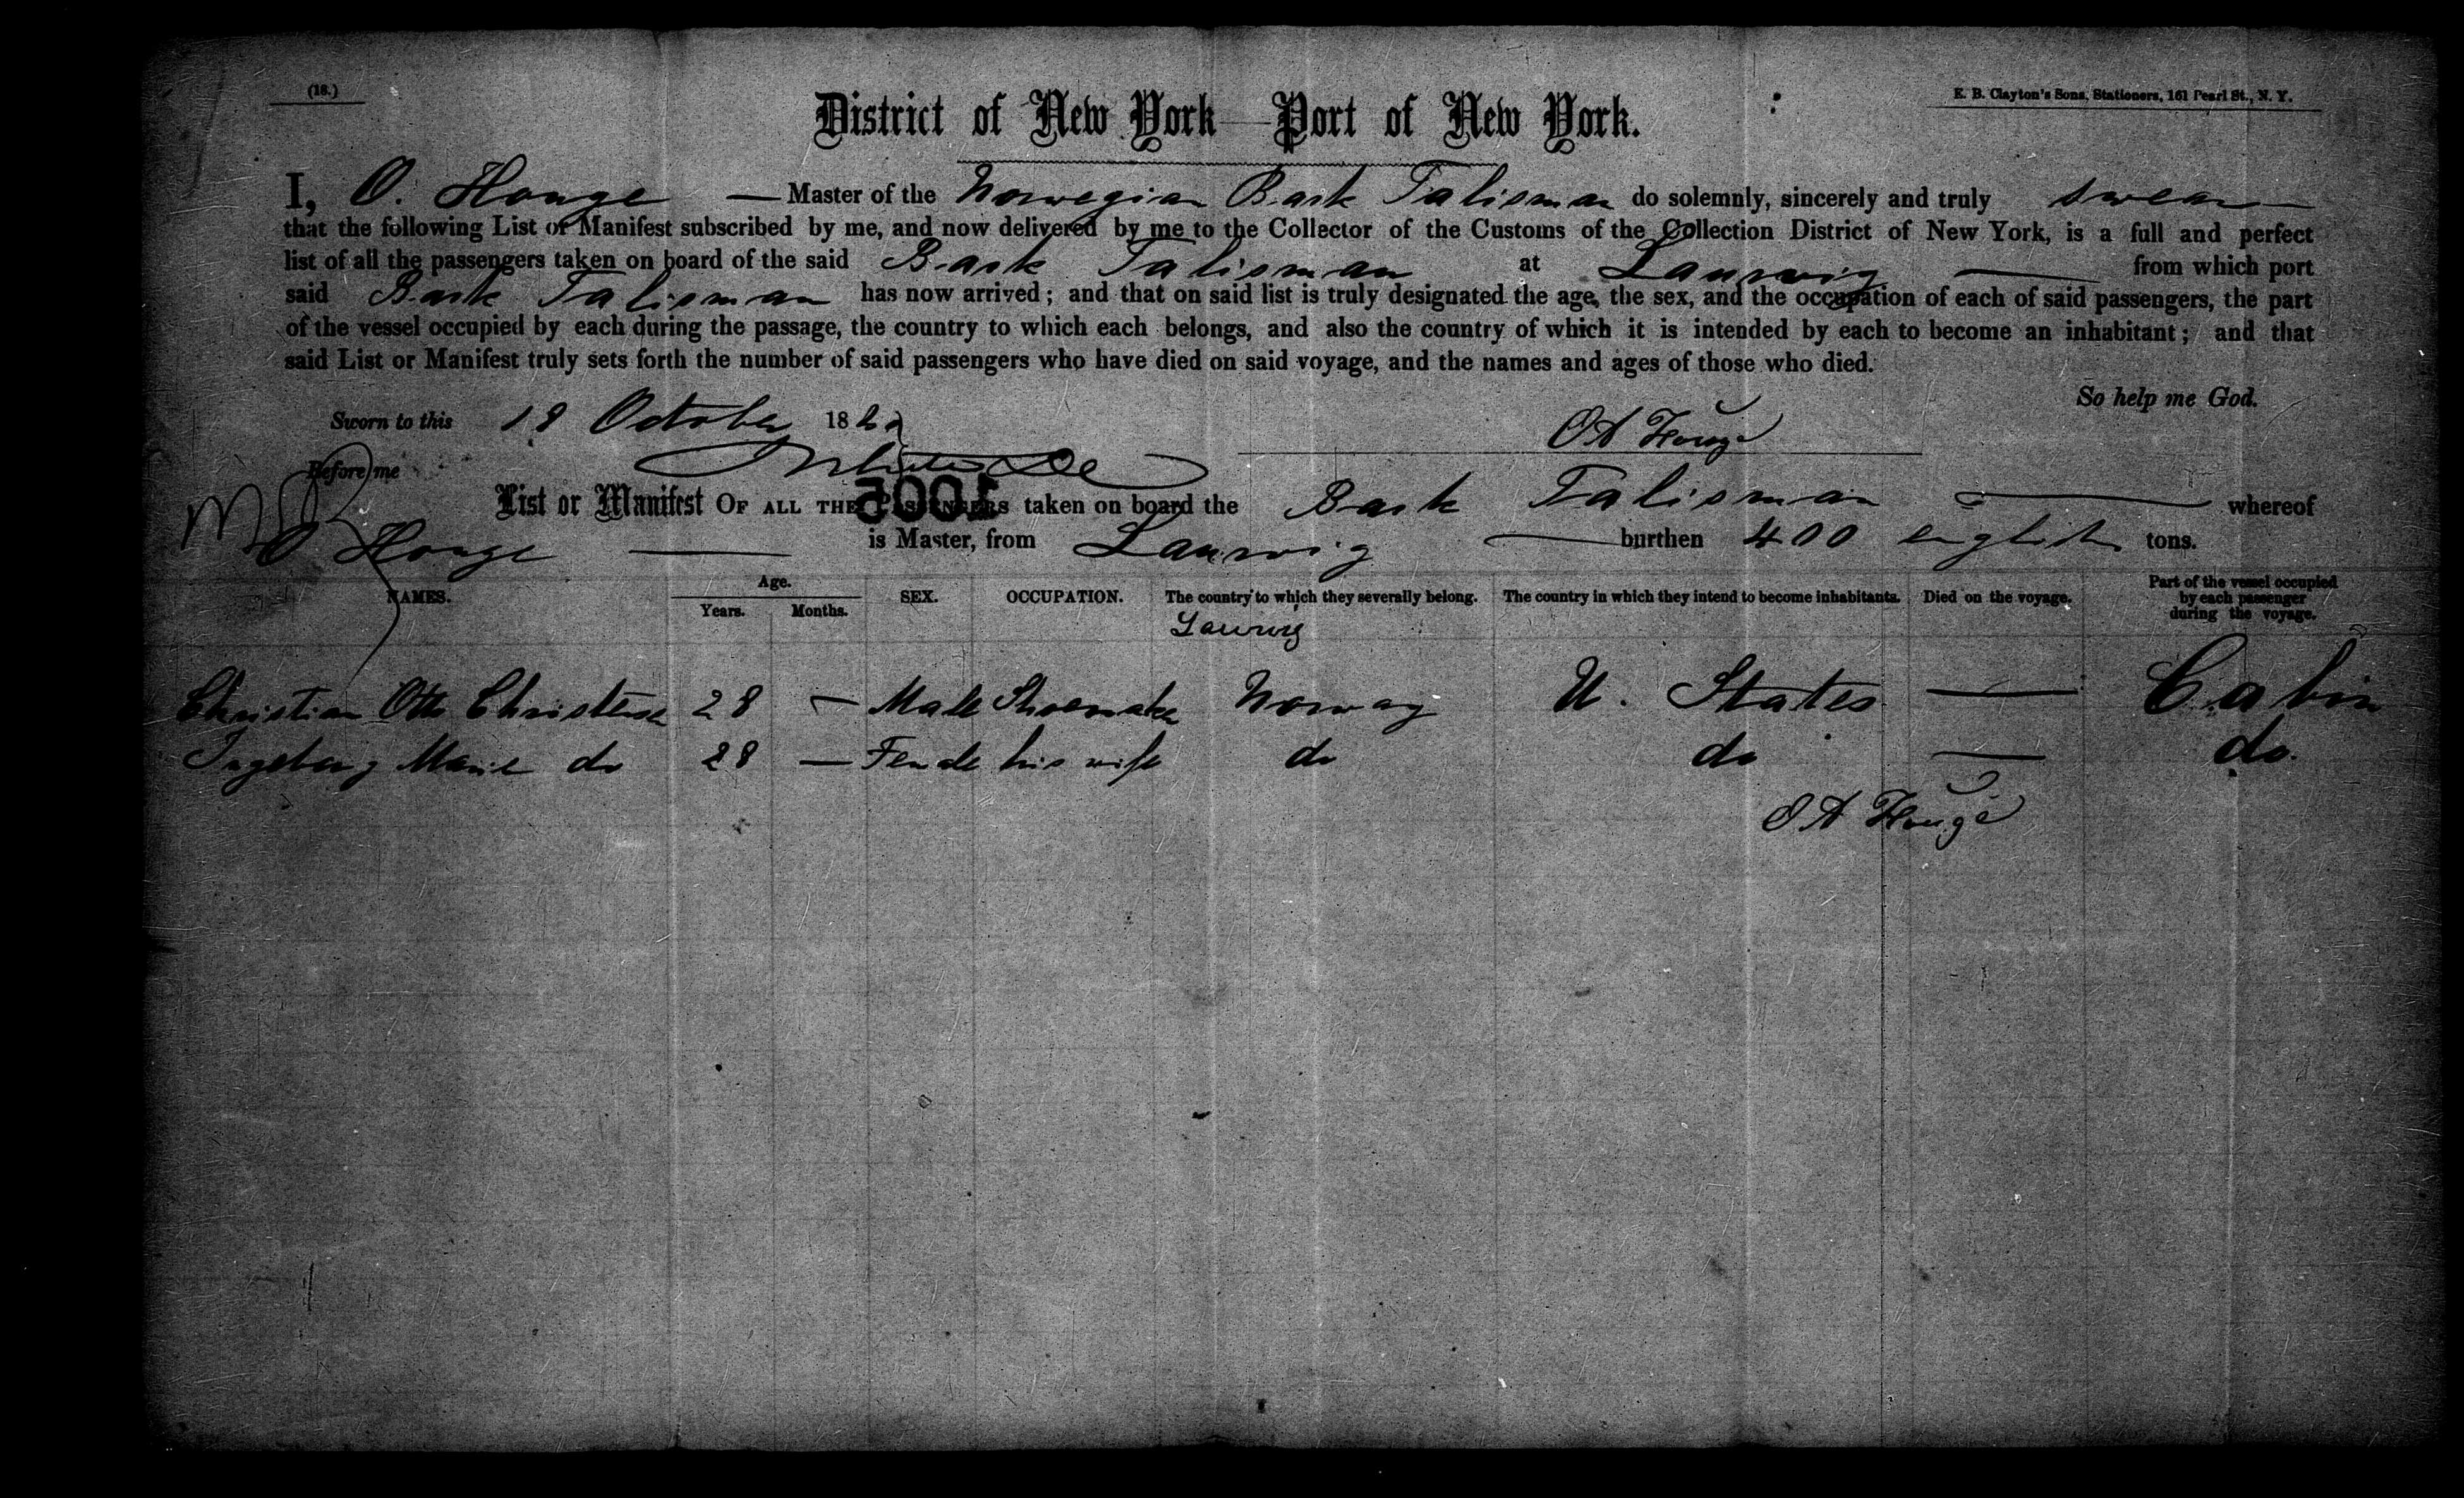 (18.)
E. B. Clayton's Sons, Stationers, 161 Pearl St., N. Y.
District of New York—Port of New York.
I, O. Houge — Master of the Norwegian Bark Talisman do solemnly, sincerely and truly swear
that the following List or Manifest subscribed by me, and now delivered by me to the Collector of the Customs of the Collection District of New York, is a full and perfect
list of all the passengers taken on board of the said Bark Talisman at Laurvig — from which port
said Bark Talisman has now arrived; and that on said list is truly designated the age, the sex, and the occupation of each of said passengers, the part
of the vessel occupied by each during the passage, the country to which each belongs, and also the country of which it is intended by each to become an inhabitant; and that
said List or Manifest truly sets forth the number of said passengers who have died on said voyage, and the names and ages of those who died.
So help me God.
Sworn to this 18 October 18
O A Houge
Before me
1005
List or Manifest OF ALL THE PASSENGERS taken on board the Bark Talisman — whereof
O Houge — is Master, from Laurvig — burthen 400 english tons.
NAMES. Age. Years. Months. SEX. OCCUPATION. The country to which they severally belong. The country in which they intend to become inhabitants. Died on the voyage. Part of the vessel occupied by each passenger during the voyage.
Laurvig
Christian Otto Christensen 28 — Male Shoemaker Norway U. States — Cabin
Ingeborg Marie do 28 — Female his wife do do — do.
O A Houge